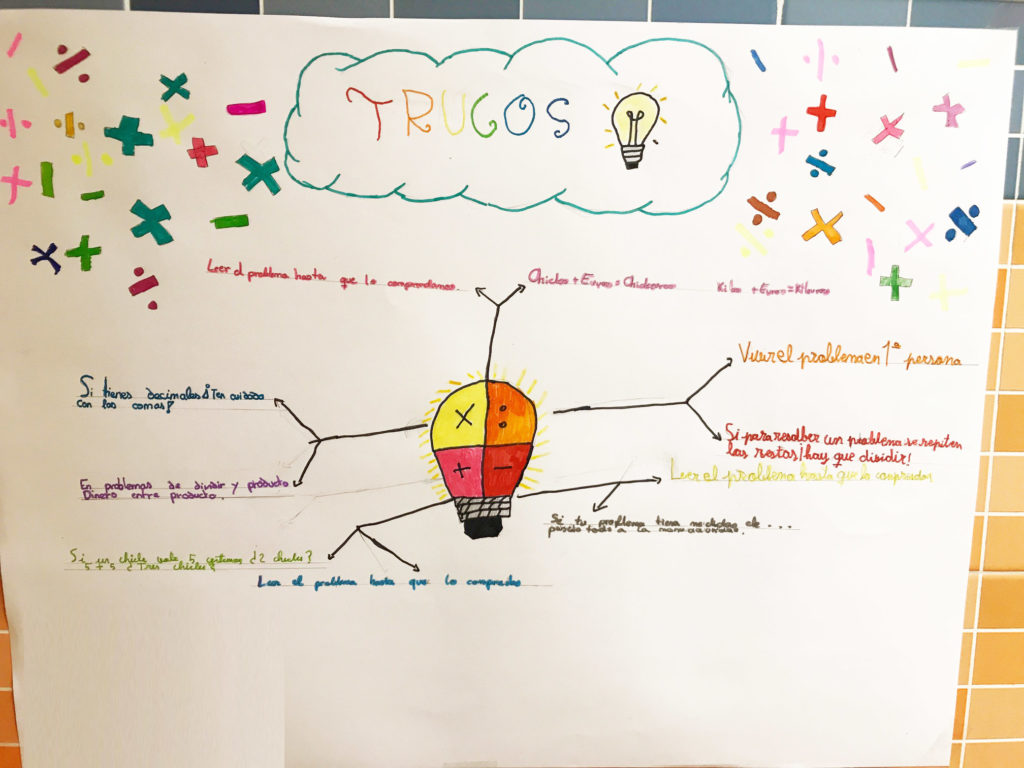 TRUCOS
Leer el problema hasta que lo comprendamos.
Chicles + Euros = Chicleeuros Kilos + Euros = Kiloeuros
Vivir el problema en 1ª persona
Si tienes decimales ¡Ten cuidado
con las comas!
Si para resolber un problema se repiten
las restas ¡hay que dividir!
Leer el problema hasta que lo comprendas
En problemas de dividir y producto
Dinero entre producto.
Si tu problema tiene medidas de ...
pasalo todo a la misma
Si un chicle vale 5 centimos ¿2 chicles?
5 + 5 ¿Tres chicles?
Leer el problema hasta que lo comprendas